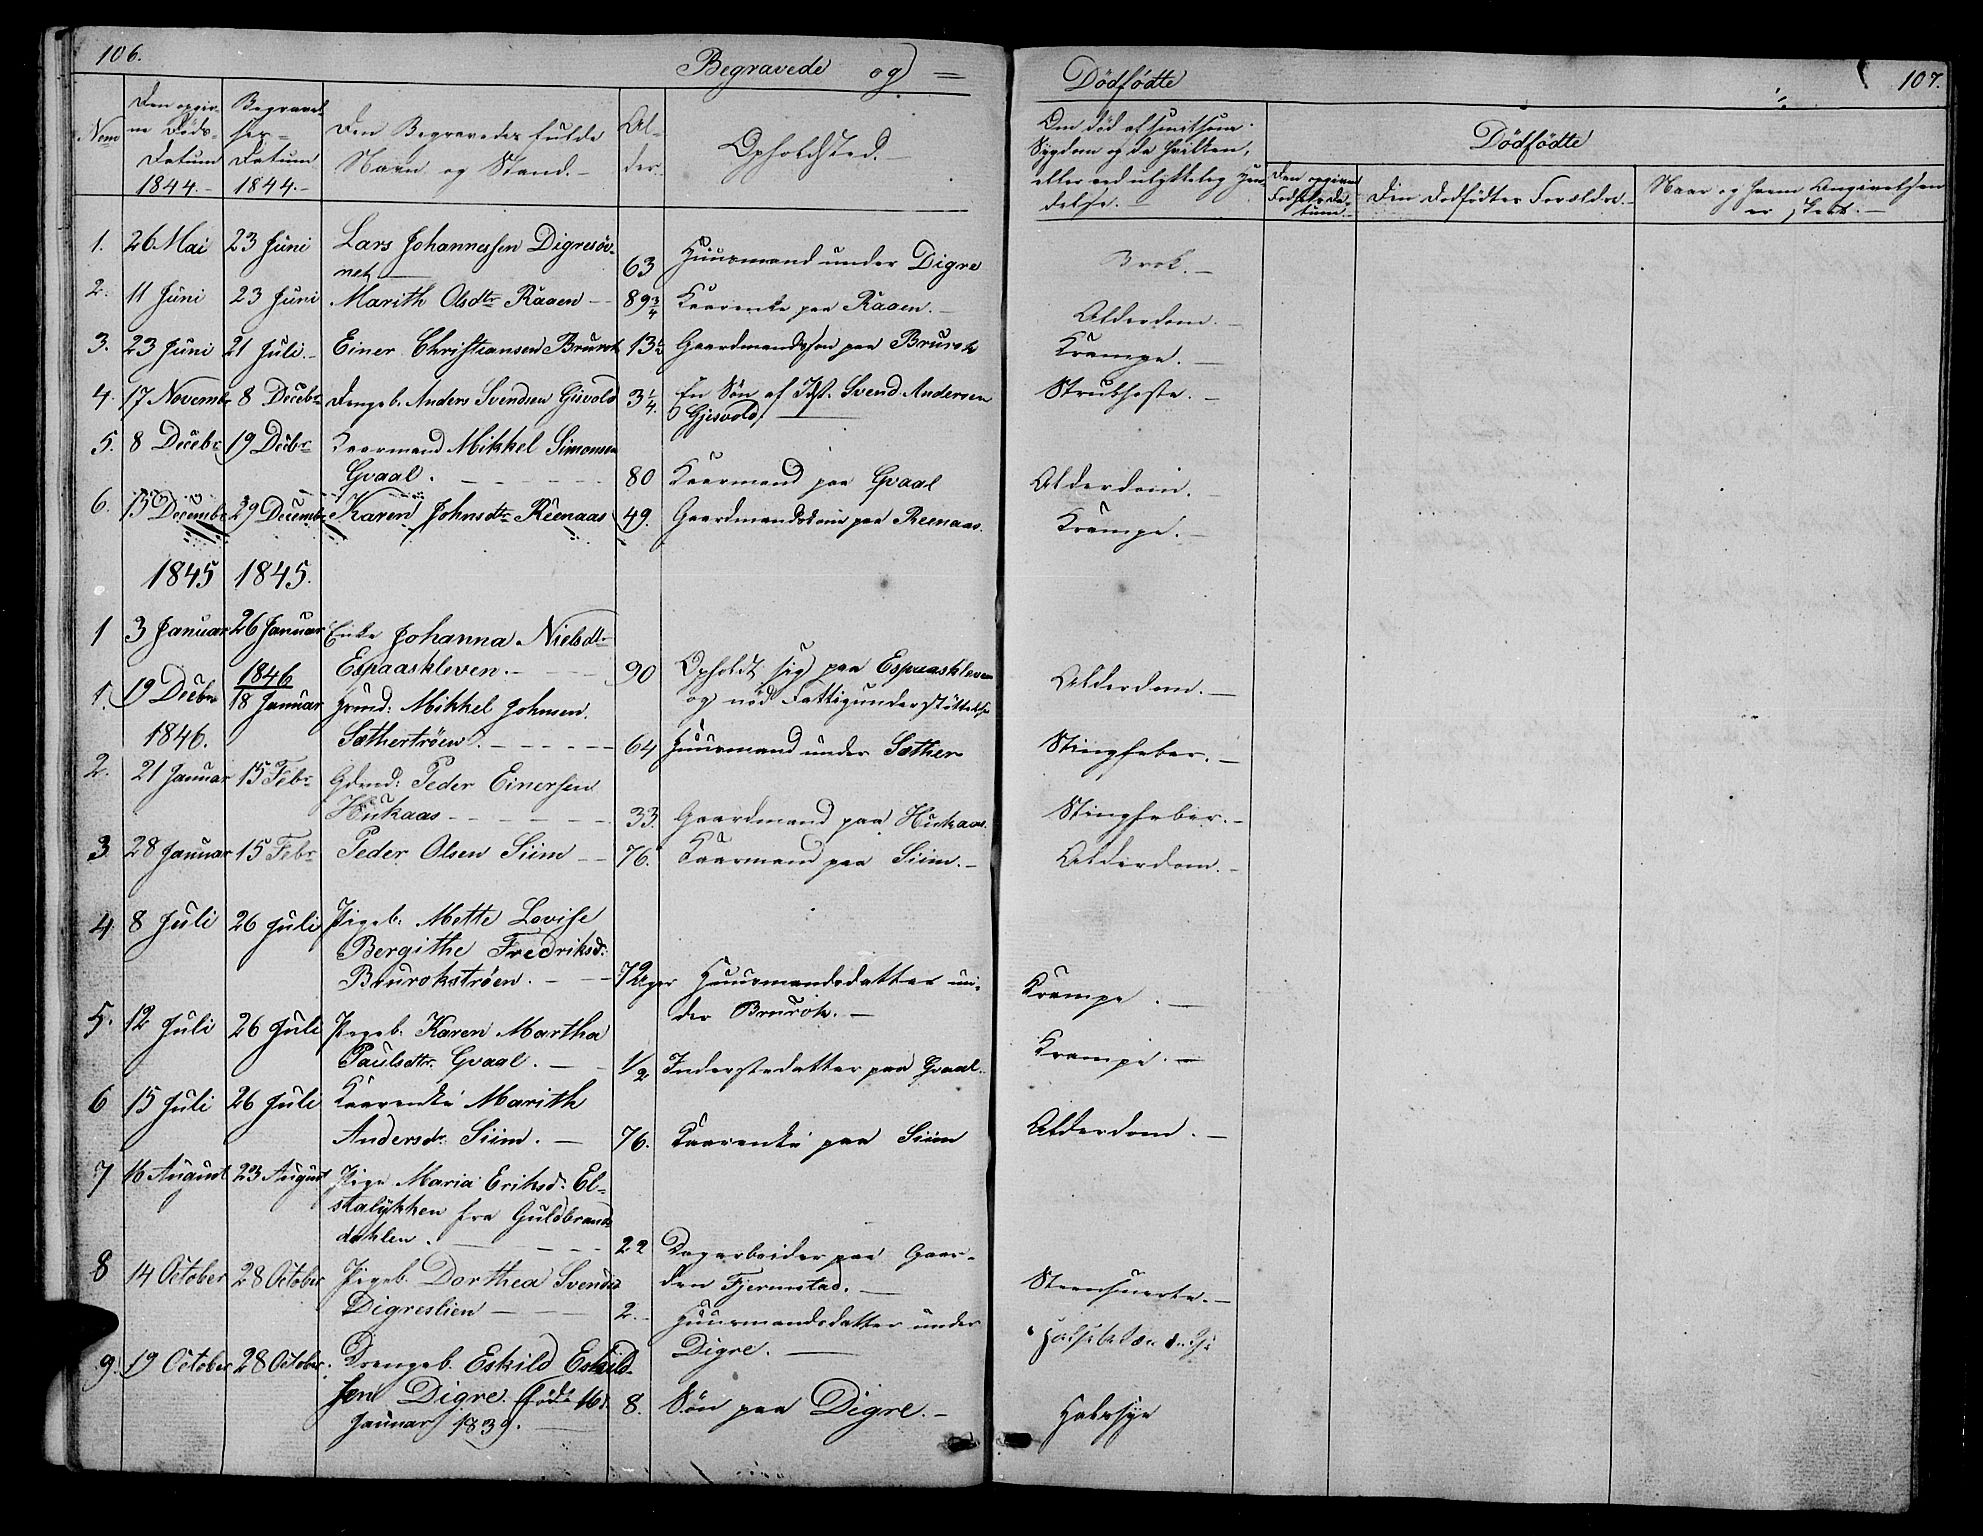 106.
Begravede og =
Dödfödte
107.
Num
Den opgivne Döds-Datum 1844.-
Begravelses-Datum 1844.-
Den Begravedes fulde Navn og Stand.-
Alder.
Opholdsted.-
Om död af smitsom Sygdom og da hvilken, eller ved ulykkelig Hændelse.-
Dödfödte
Den opgivne Födsels Datum.-
Den Dödfödtes Forældre.-
Naar og hvem Angivelsen er skeet.-
1. 26 Mai 23 Juni Lars Johannessen Digresöv-
net 63 Huusmand under Digre Brok.-
2. 11 Juni 23 Juni Marith Olsdtr Raaen 89 3/4 Kaarenke paa Raaen.- Alderdom.-
3. 23 Juni 21 Juli.- Einer Christiansen Brurok 13 1/2 Gaardmandssøn paa Brurok Krampe.-
4. 17 Novembr 8 Decebr Drengeb. Anders Svendsen Gisvold 3 1/4. En Sön af Svend Andersen
Gjisvold. Strubhoste.-
5. 8 Decebr 19 Decbr Kaarmand Mikkel Simonsen
Gvaal. 80 Kaarmand paa Gvaal Alderdom.-
6. 13 Decembr 29 Decembr Karen Johnsdtr Reenaas 49. Gaardmandskone paa Reenaas. Krampe.-
1845 1845.
1 3 Januar 26 Januar Enke Johanna Nielsdtr
Espaaskleven.- 90 Opholdt sig paa Espaaskleven Alderdom.-
og nöd Fattigunderstöttelse
1846
1. 19 Decbr 18 Januar Huusmd: Mikkel Johnsen
1846. Sæthertröen. 64 Huusmand under Sæther Stingfeber.-
2. 21 Januar 15 Febr Gdmd: Peder Einersen
Hukaas 33. Gaardmand paa Hukaas. Stingfeber.-
3. 28 Januar 15 Febr Peder Olsen Siim 76. Kaarmand paa Siim.- Alderdom.-
4. 8 Juli 26 Juli Pigeb. Mette Lovise
Bergithe Fredriksd:
Brurokströen. 7 Uger Huusmandsdatter un- Krampe.-
der Brurok.-
5. 12 Juli 26 Juli Pigeb. Karen Martha
Paulsdtr. Gvaal.- 1/2 Inderstedatter paa Gvaal. Krampe.-
6 15 Juli 26 Juli Kaarenke Marith
Andersdr. Siim.- 76. Kaarenke paa Siim Alderdom.-
7 16 August 23 August Pige Maria Eriksd: El-
stalykken fra Guldbrands-
dahlen. 22 Dagarbeider paa Gaar-
den Fjermstad.-
8 14 October 28 October Pigeb. Dorthea Svendsd
Digreslien 2.- Huusmandsdatter under
Digre.-
9. 19 October 28 October. Drengeb. Eskild Eskild-
sen Digre. födt 16d
Januar 1839. 8. Sön paa Digre.- Halssyge